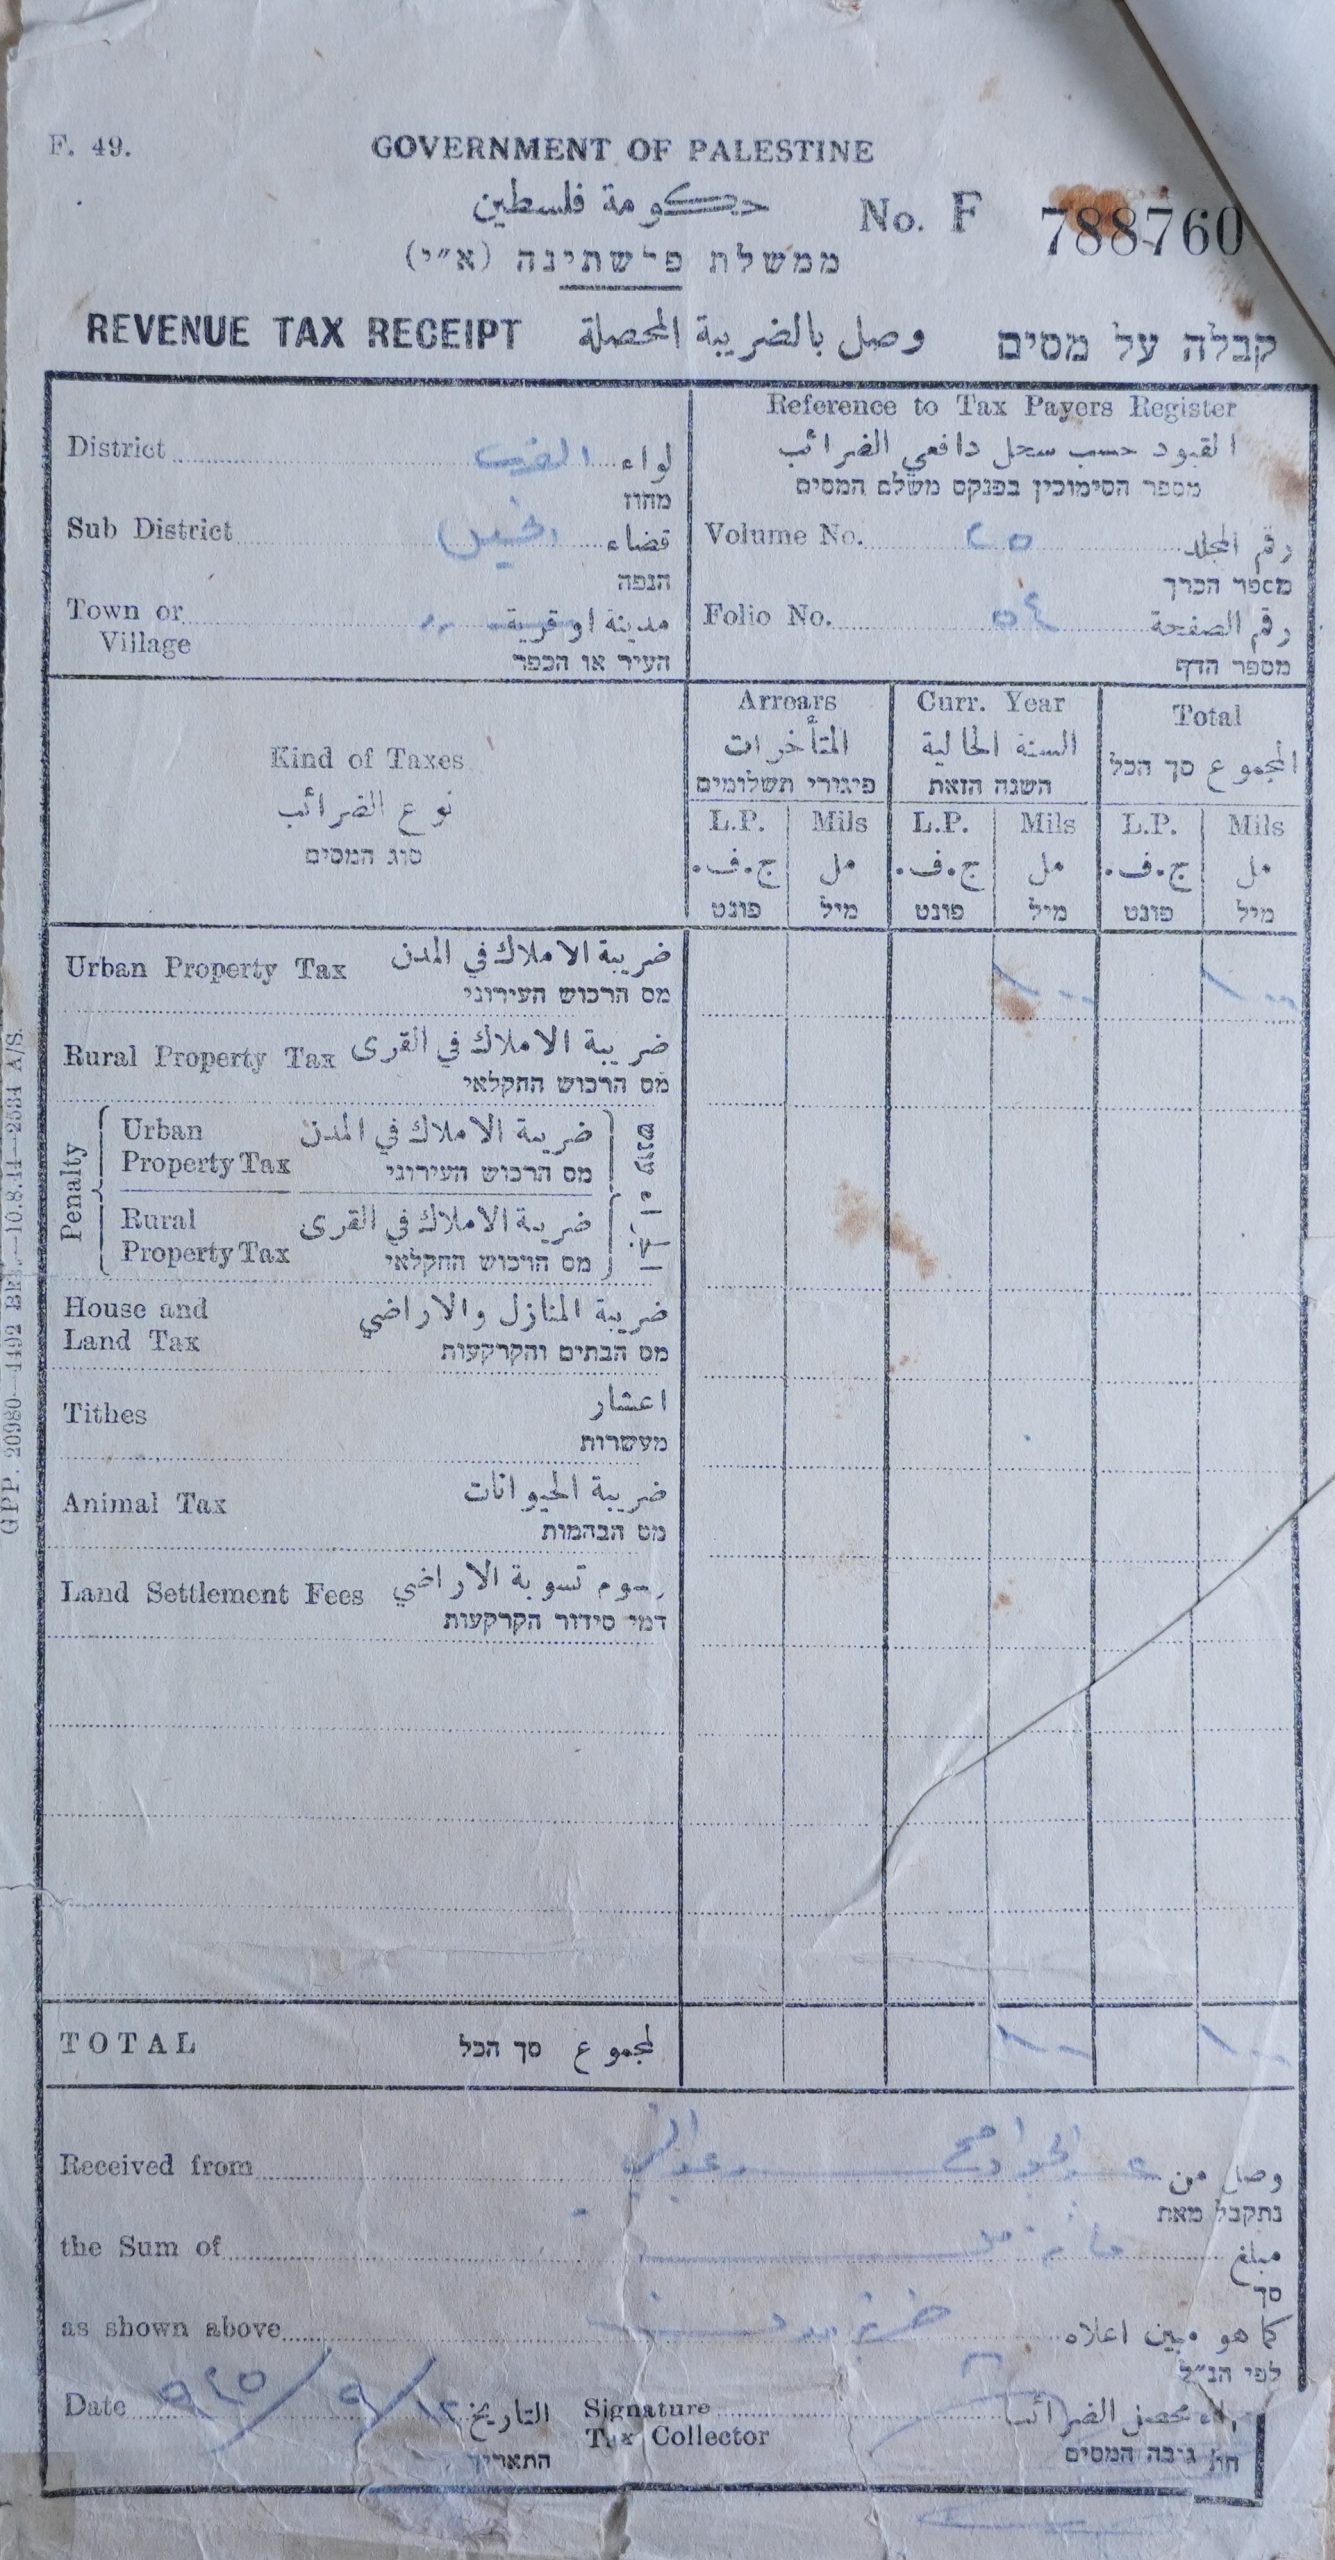 F. 49.
GOVERNMENT OF PALESTINE
حكومة فلسطين
No. F 788760
ממשלת פלשתינה (א״י)
REVENUE TAX RECEIPT وصل بالضريبة المحصلة קבלה על מסים
District لواء
מחוז
Sub District الخليل قضاء
הנפה
Town or Village " مدينة او قرية
העיר או הכפר
Reference to Tax Payers Register
القيود حسب سجل دافعي الضرائب
מספר הסימוכין בפנקס משלם המסים
Volume No. ٢٥ رقم المجلد
מספר הכרך
Folio No. ٥٤ رقم الصفحة
מספר הדף
Kind of Taxes
نوع الضرائب
סוג המסים
Arrears
المتأخرات
פיגורי תשלומים
Curr. Year
السنة الحالية
השנה הזאת
Total
المجموع סך הכל
L.P. Mils L.P. Mils L.P. Mils
ج.ف. مل ج.ف. مل ج.ف. مل
פונט מיל פונט מיל פונט מיל
Urban Property Tax ضريبة الاملاك في المدن ١٠٠ ١٠٠
מס הרכוש העירוני
Rural Property Tax ضريبة الاملاك في القرى
מס הרכוש החקלאי
Penalty
Urban Property Tax ضريبة الاملاك في المدن
מס הרכוש העירוני
Rural Property Tax ضريبة الاملاك في القرى
מס הרכוש החקלאי
עונש
House and Land Tax ضريبة المنازل والاراضي
מס הבתים והקרקעות
Tithes اعشار
מעשרות
Animal Tax ضريبة الحيوانات
מס הבהמות
Land Settlement Fees رسوم تسوية الاراضي
דמי סידור הקרקעות
TOTAL المجموع סך הכל ١٠٠ ١٠٠
Received from وصل من
נתקבל מאת
the Sum of مبلغ
סך
as shown above كما هو مبين اعلاه
לפי הנ״ל
Date ١٢/٩/٩٤٥ التاريخ
התאריך
Signature Tax Collector محصل الضرائب
גובה המסים
GPP. 20980—1492 Bks.—10.8.44—2534 A/S.